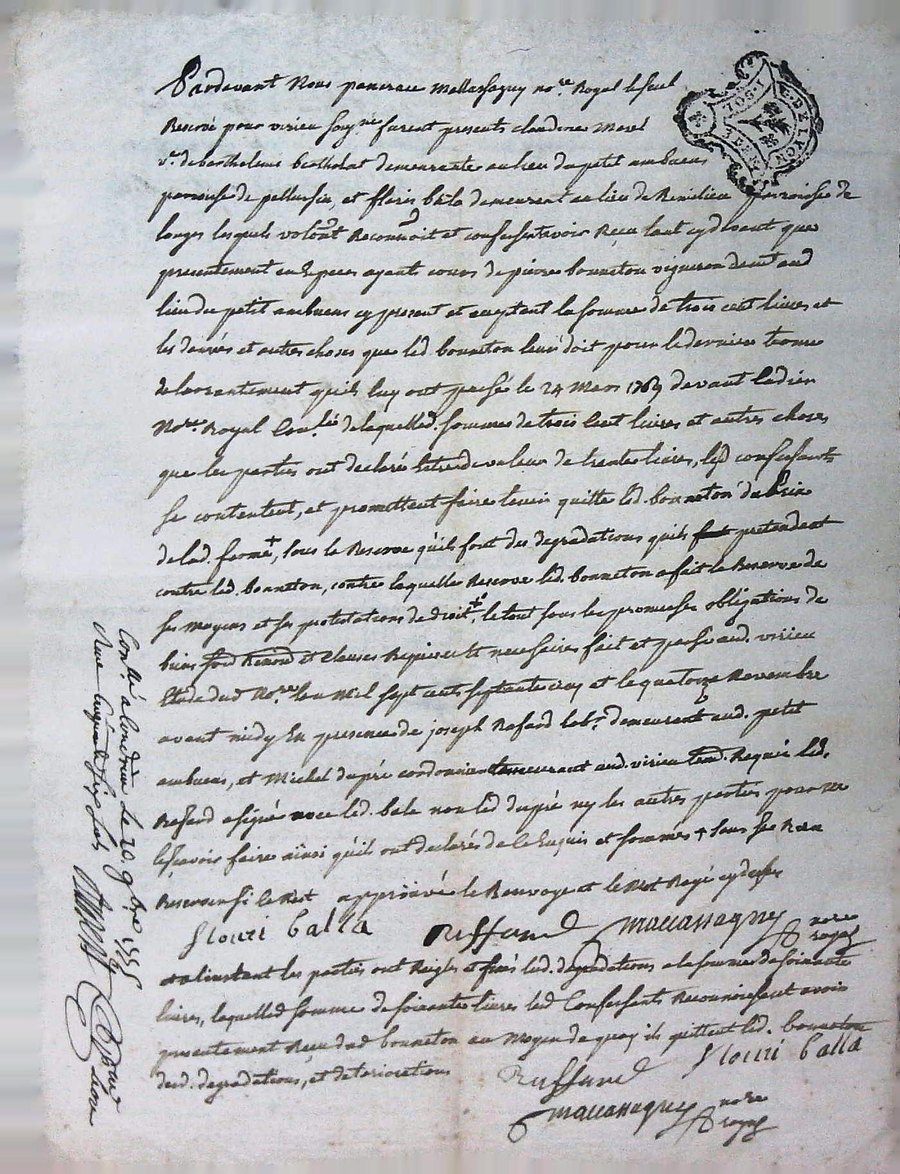 Pardevant Nous pancrace Mallassagny no.re Royal
Reservé pour virieu soug.né furent presents claudine Morel
v.e de barthelemy bertholat demeurante au lieu du petit ambuens
paroisse de pellussin, et floris bala demeurant au lieu de Remilieu paroisse de
longes lesquels volont Reconnoit et confessent avoir Reçu tant cy devant que
presentement en Especes ayants cours de pierre bonneton vigneron demt aud
lieu du petit ambuens cy present et acceptant la somme de trois cent livres et
les danrés et autres choses que led. bonneton leur doit pour le dernier terme
de quils luy ont passé le 24 Mars 1769 devant
No.re Royal de laquelled. somme de trois Cent livres et autres choses
que les parties ont declaré Estre de valeur de trente livres, led confessants
se contentent, et promettent faire tenir quitte led. bonneton du prix
de lad. ferme +, sous la Reserve qu'ils font des degradations quils pretendent
contre led. bonneton, contre laquelle Reserve led. bonneton a fait la Reserve de
ses moyens et ses protestations de droit, le tout sous les promesses obligations de
biens et clauses Requises et necessaires fait et passé aud. virieu
Etude dud No.re lan Mil sept cents septante cinq et le quatorze Novembre
avant midy En presence de joseph Rafard lab.r demeurant aud. petit
ambuens, et Michel dupré cordonnier demeurant aud. virieu Requis led.
Rafard a signé avec led. bala non led dupré ny les autres parties pour ne
le sçavoir faire ainsi qu'ils ont declarés de ce Enquis et sommés + sous ses
Reserves approuvé le Renvoye et le Mot Rayé cy dessus
flouri balla Ruffard Mallassagny no.re royal
a linstant les parties ont Reglés et fixés led. degradations a la somme de soixante
livres, laquelled somme de soixante livres led Confessants Reconnoissent avoir
presentement Reçu dud bonneton au Moyen de quoy ils quittent led. bonneton
desd. degradations, et deteriorations flouri balla
Ruffard
Mallassagny no.re royal
Con.llé a Condrieu le 20 9bre 1775
Reçu
1765
G. DE LYON